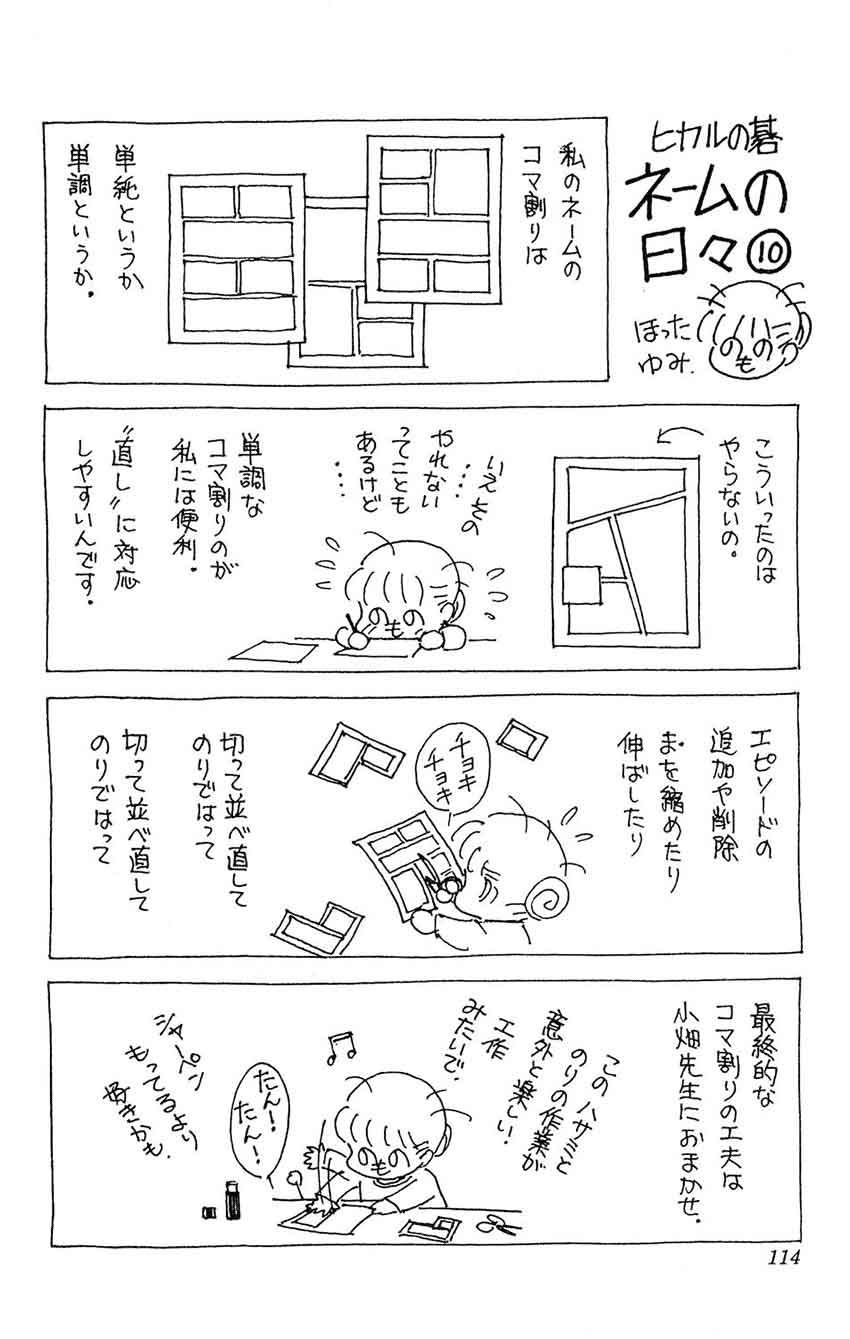 ヒカルの碁
ネームの
日々⑩
ほった
ゆみ.
私のネームの
コマ割りは
単純というか
単調というか.
こういったのは
やらないの.
いえその
‥‥
やれない
ってことも
あるけど
‥‥
単調な
コマ割りのが
私には便利.
"直し"に対応
しやすいんです.
エピソードの
追加や削除
まを縮めたり
伸ばしたり
チョキ
チョキ
切って並べ直して
のりではって
切って並べ直して
のりではって
最終的な
コマ割りの工夫は
小畑先生におまかせ.
このハサミと
のりの作業が
意外と楽しい!
工作
みたいで.
たん!
たん!
シャーペン
もってるより
好きかも.
114